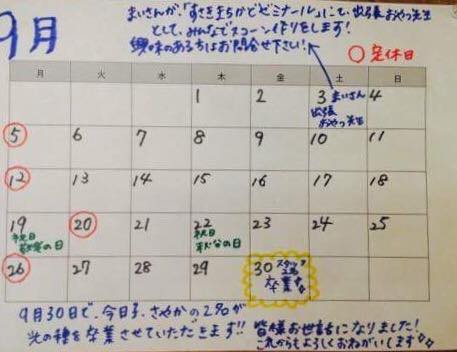 9月
まいさんが、「すさきまちかどギャラリー」にて、出張おやつ先生
として、みんなでスコーン作りをします!
興味のある方はお問合せ下さい!
○定休日
月 火 水 木 金 土 日
1 2 3 まいさん 4
出張
おやつ先生
5 6 7 8 9 10 11
12 13 14 15 16 17 18
19 20 21 22 23 24 25
祝日 祝日
の日 秋分の日
26 27 28 29 30 スタッフ
2名
卒業
9月30日で、今日子、さやかの2名が
光の種を卒業させていただきます!!
皆様お世話になりました!
これからもよろしくおねがいします